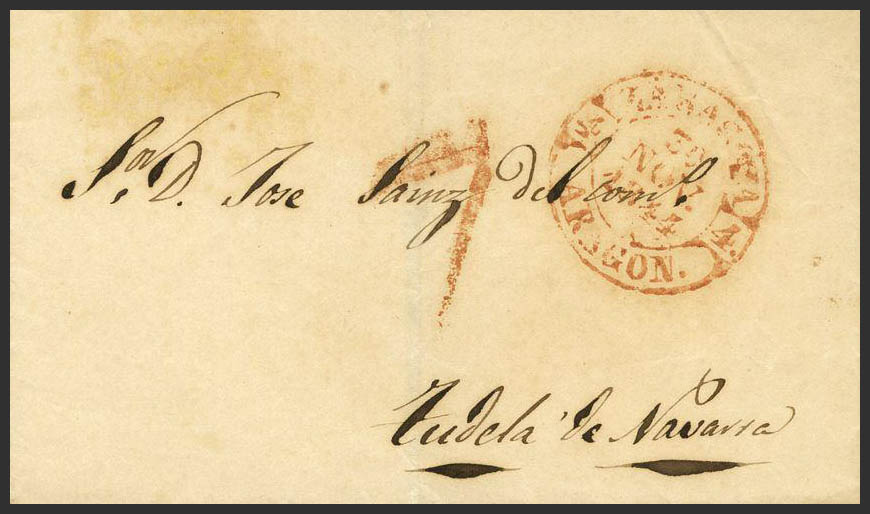 Sor. D. Jose Sainz del com.o
7
ZARAGOZA
NOV
ARAGON.
Tudela de Navarra